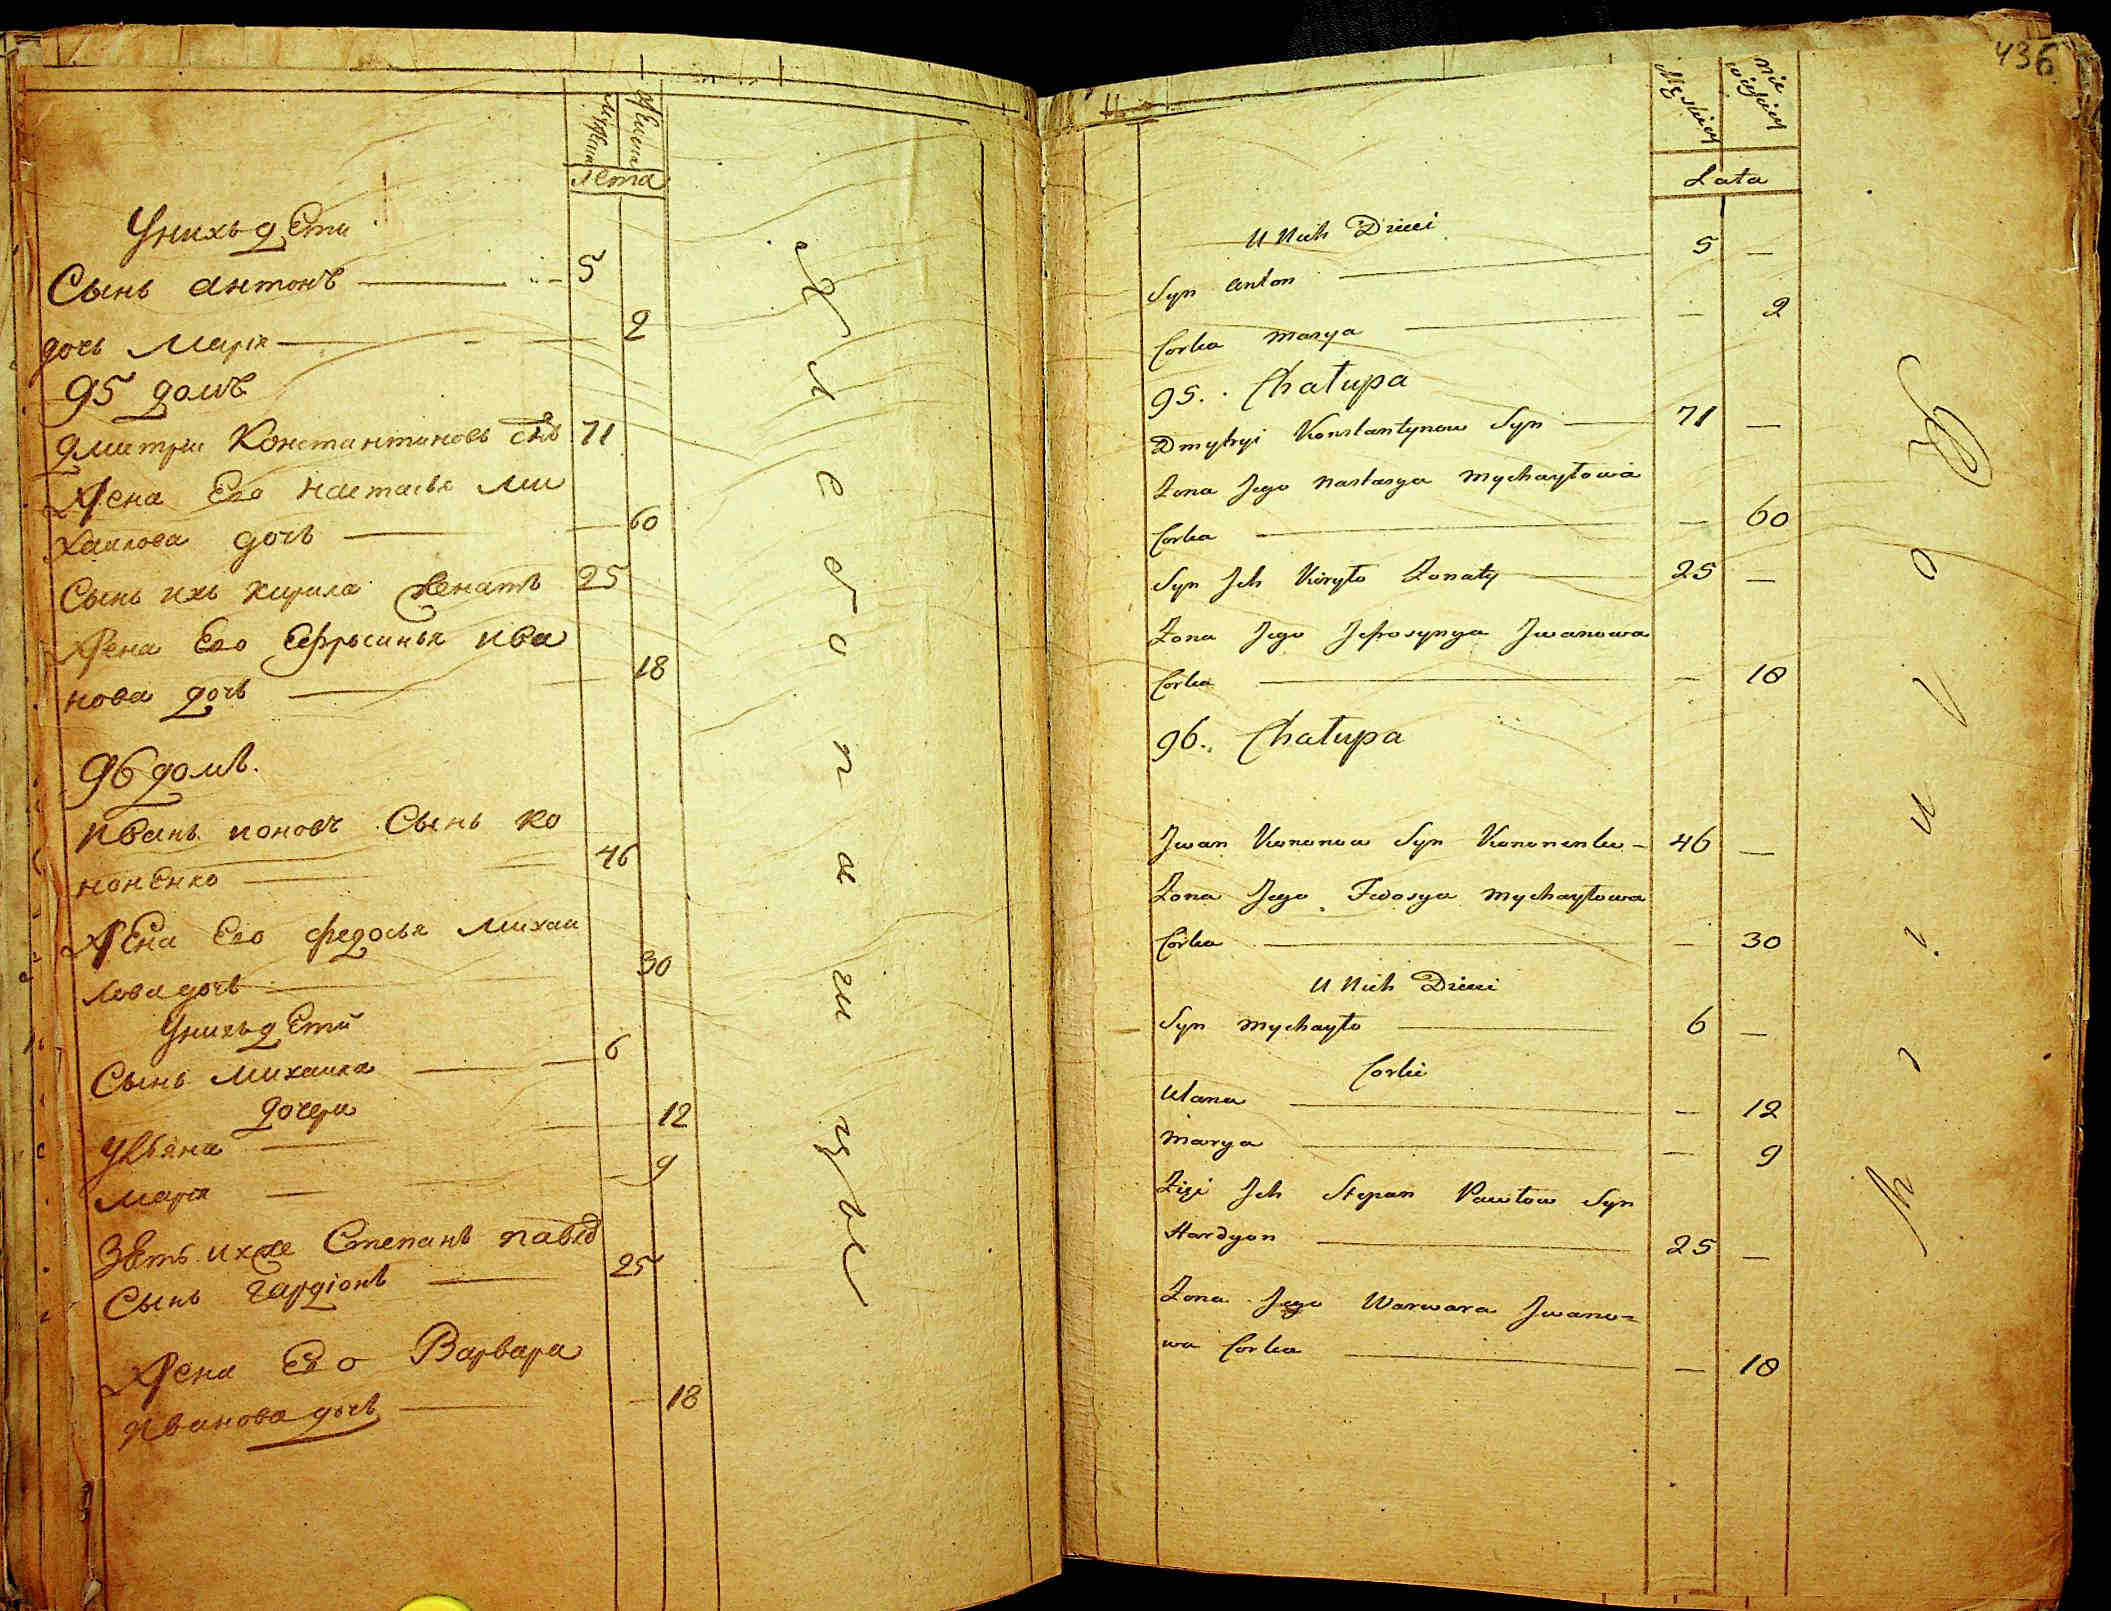 мужеска
женска
лета
У нихъ дети
Сынъ антонъ 5
дочь Марія 2
95 домъ
дмитри Константиновъ снъ 71
Жена Его настасья Ми
хаилова дочь 60
Сынъ ихъ кирила женатъ 25
Жена Его Ефросинья ива
нова дочь 18
96 домъ.
иванъ коновъ Сынъ ко
ноненко 46
Жена Его федосья михаи
лова дочь 30
У нихъ дети
Сынъ михаила 6
дочери
Ульяна 12
Марія 9
Зять ихже Степанъ павло
Сынъ гардіонъ 25
Жена Его Варвара
иванова дочь 18
Хлебопашцы
436
Męskiey
niewieściey
Lata
U Nich Dzieci
Syn Anton 5 —
Corka Marya — 2
95. Chałupa
Dmytryi Konstantynow Syn 71 —
Żona Jego Nastasya Mychayłowa
Corka — 60
Syn Jch Kiryło Żonaty 25 —
Żona Jego Jefrosynya Jwanowa
Corka — 18
96. Chałupa
Jwan Kononow Syn Kononenko 46 —
Żona Jego Fedosya Mychayłowa
Corka — 30
U Nich Dzieci
Syn Mychayło 6 —
Corki
Ulana — 12
Marya — 9
Zięć Jch Stepan Pawłow Syn
Hardyon 25 —
Żona Jego Warwara Jwano=
wa Corka — 18
Rolniicy